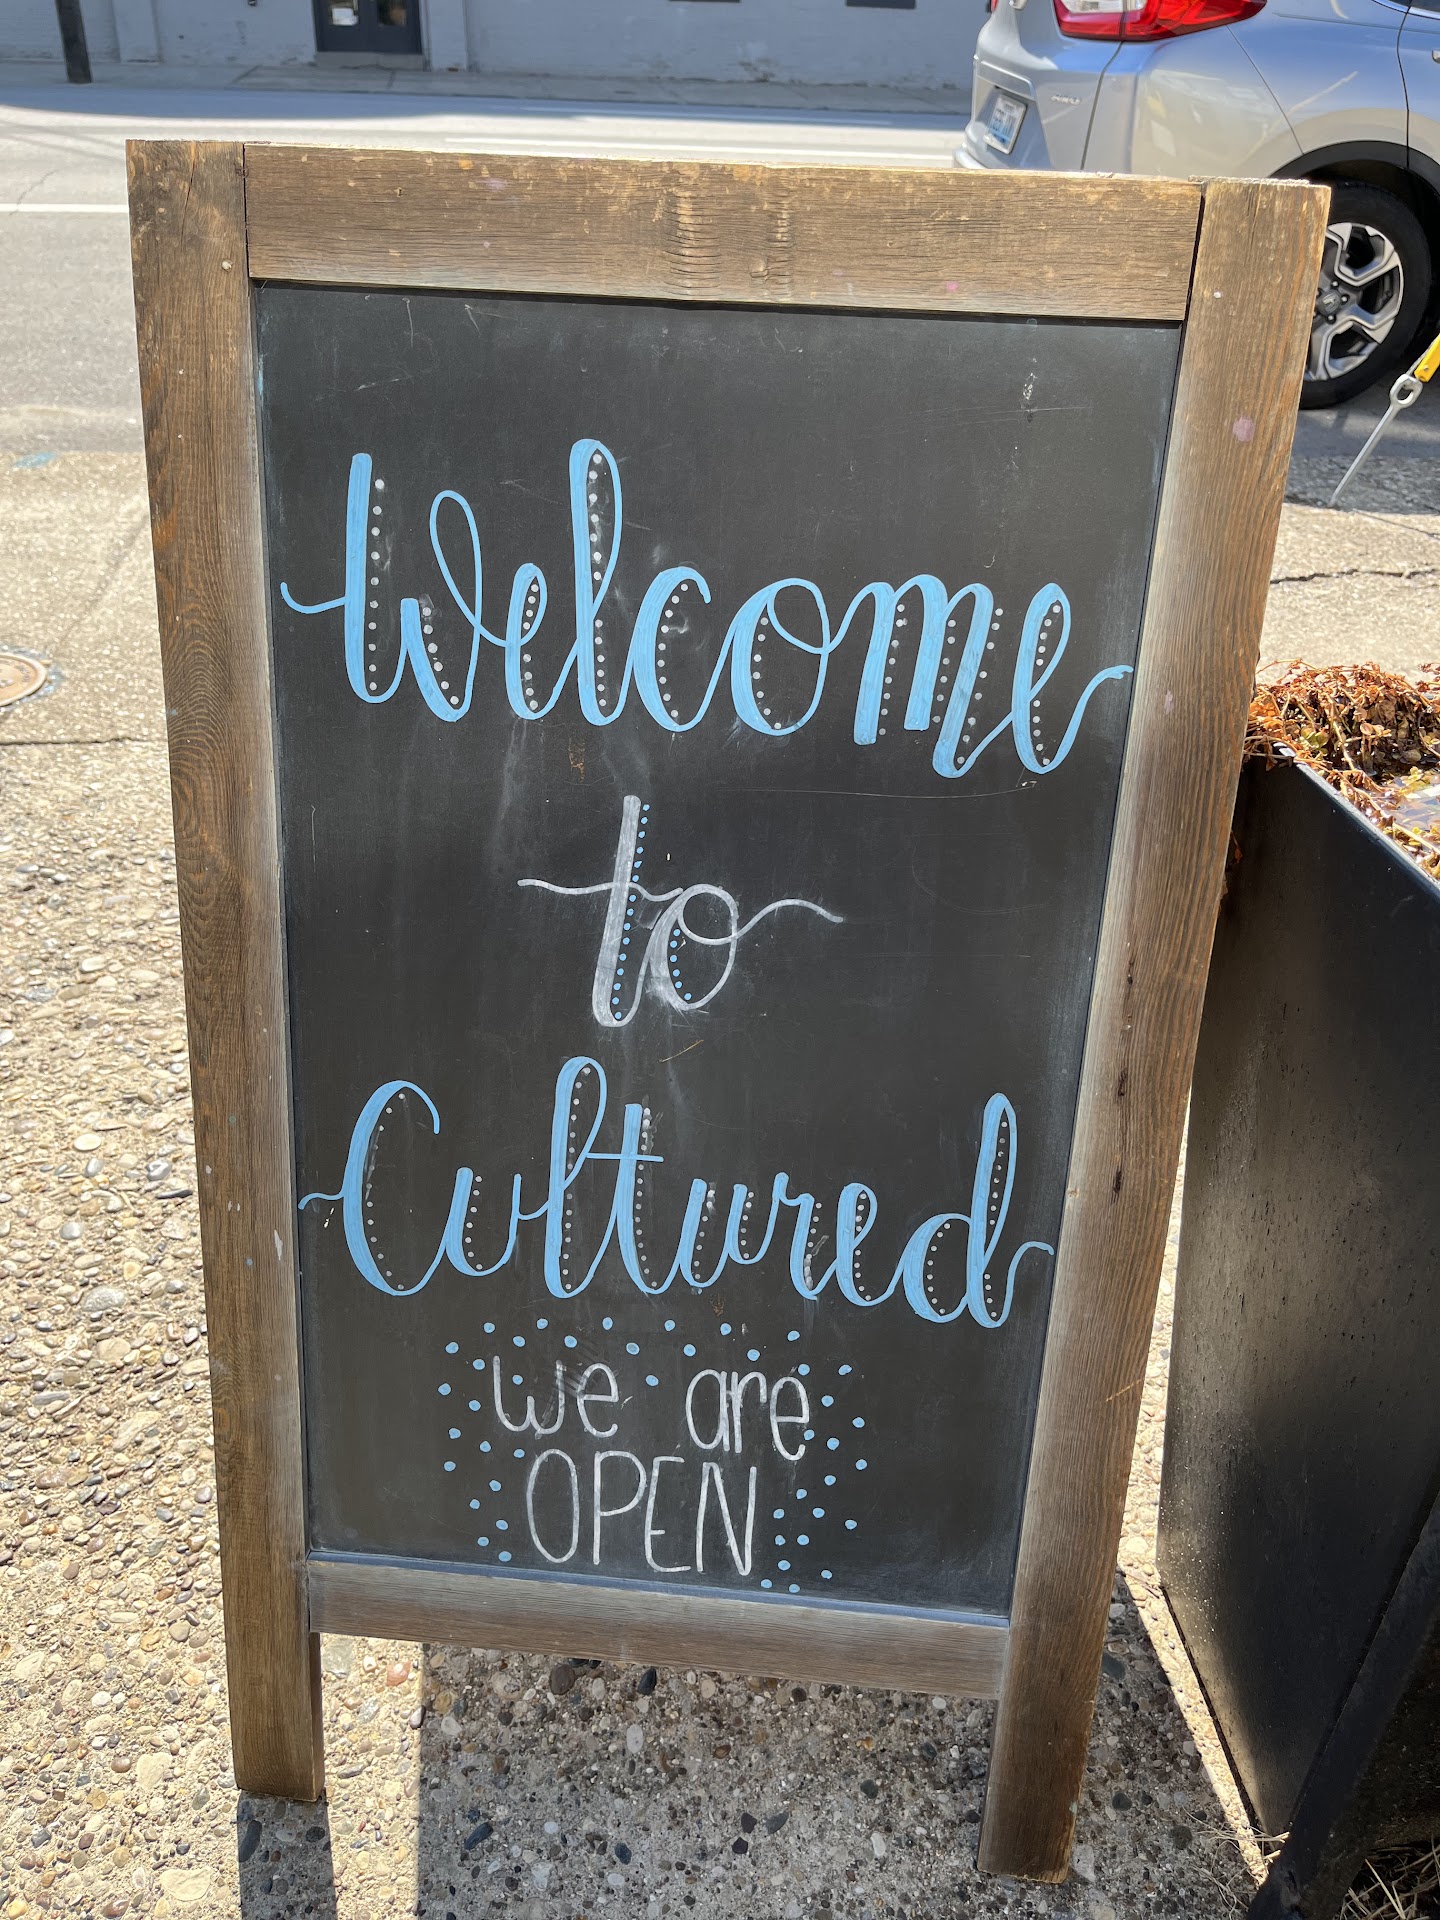 Welcome
to
Cultured
we are
OPEN